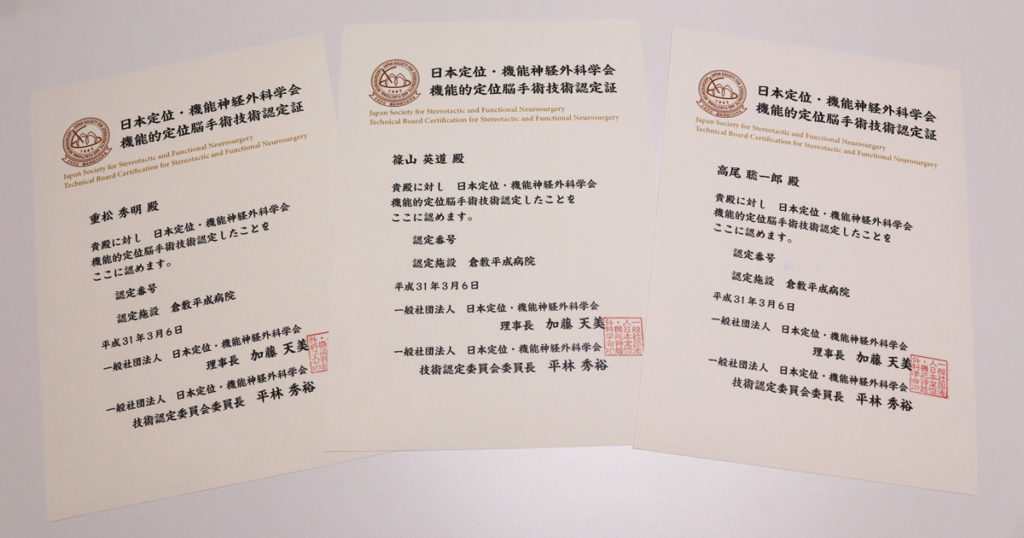 日本定位・機能神経外科学会
機能的定位脳手術技術認定証
Japan Society for Stereotactic and Functional Neurosurgery
Technical Board Certification for Stereotactic and Functional Neurosurgery
重松 秀明 殿
貴殿に対し 日本定位・機能神経外科学会
機能的定位脳手術技術認定したことを
ここに認めます。
認定番号
認定施設 倉敷平成病院
平成31年3月6日
一般社団法人 日本定位・機能神経外科学会
理事長 加藤 天美
一般社団法人 日本定位・機能神経外科学会
技術認定委員会委員長 平林 秀裕
日本定位・機能神経外科学会
機能的定位脳手術技術認定証
Japan Society for Stereotactic and Functional Neurosurgery
Technical Board Certification for Stereotactic and Functional Neurosurgery
篠山 英道 殿
貴殿に対し 日本定位・機能神経外科学会
機能的定位脳手術技術認定したことを
ここに認めます。
認定番号
認定施設 倉敷平成病院
平成31年3月6日
一般社団法人 日本定位・機能神経外科学会
理事長 加藤 天美
一般社団法人 日本定位・機能神経外科学会
技術認定委員会委員長 平林 秀裕
日本定位・機能神経外科学会
機能的定位脳手術技術認定証
Japan Society for Stereotactic and Functional Neurosurgery
Technical Board Certification for Stereotactic and Functional Neurosurgery
高尾 聡一郎 殿
貴殿に対し 日本定位・機能神経外科学会
機能的定位脳手術技術認定したことを
ここに認めます。
認定番号
認定施設 倉敷平成病院
平成31年3月6日
一般社団法人 日本定位・機能神経外科学会
理事長 加藤 天美
一般社団法人 日本定位・機能神経外科学会
技術認定委員会委員長 平林 秀裕